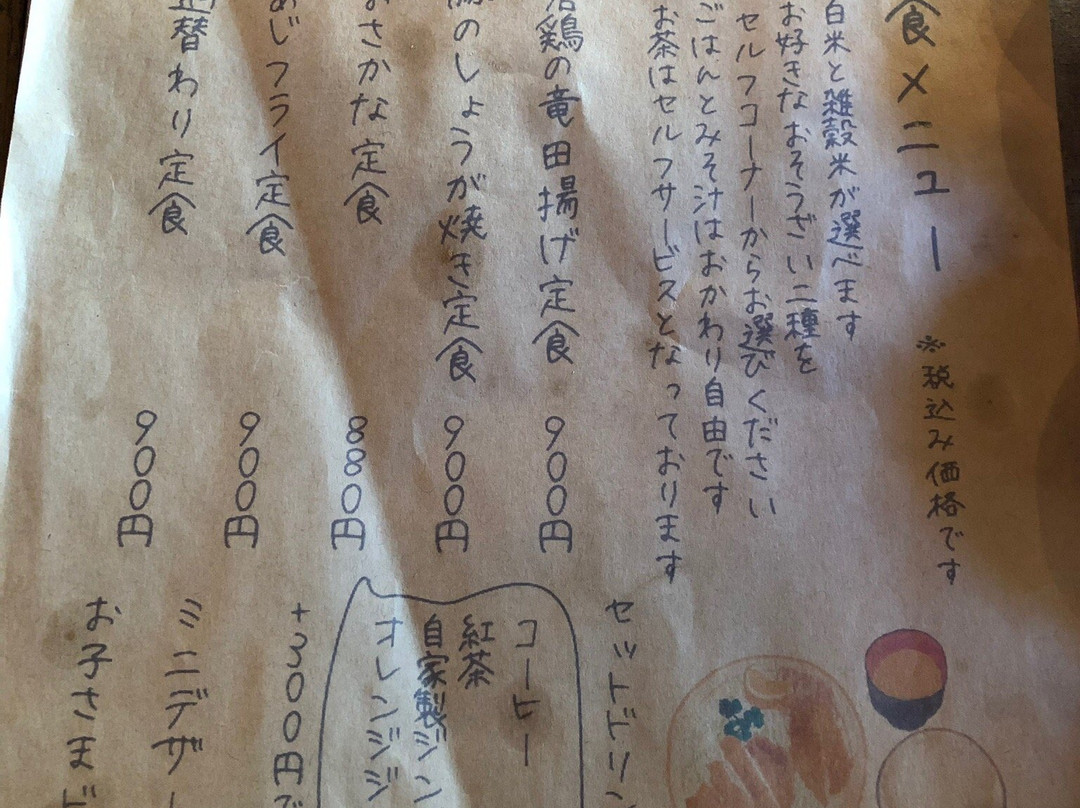 食メニュー
※税込み価格です
白米と雑穀米が選べます
お好きなおそうざい二種を
セルフコーナーからお選びください
ごはんとみそ汁はおかわり自由です
お茶はセルフサービスとなっております
鶏の竜田揚げ定食 900円
のしょうが焼き定食 900円
おさかな定食 880円
あじフライ定食 900円
替わり定食 900円
セットドリン
コーヒー
紅茶
自家製ジン
オレンジジ
+300円で
ミニデザー
お子さまド